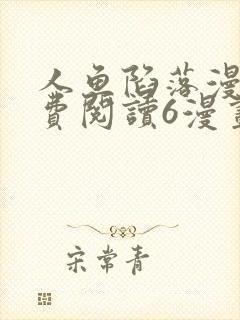 人鱼陷落漫
费閱讀6漫畫
宋常青